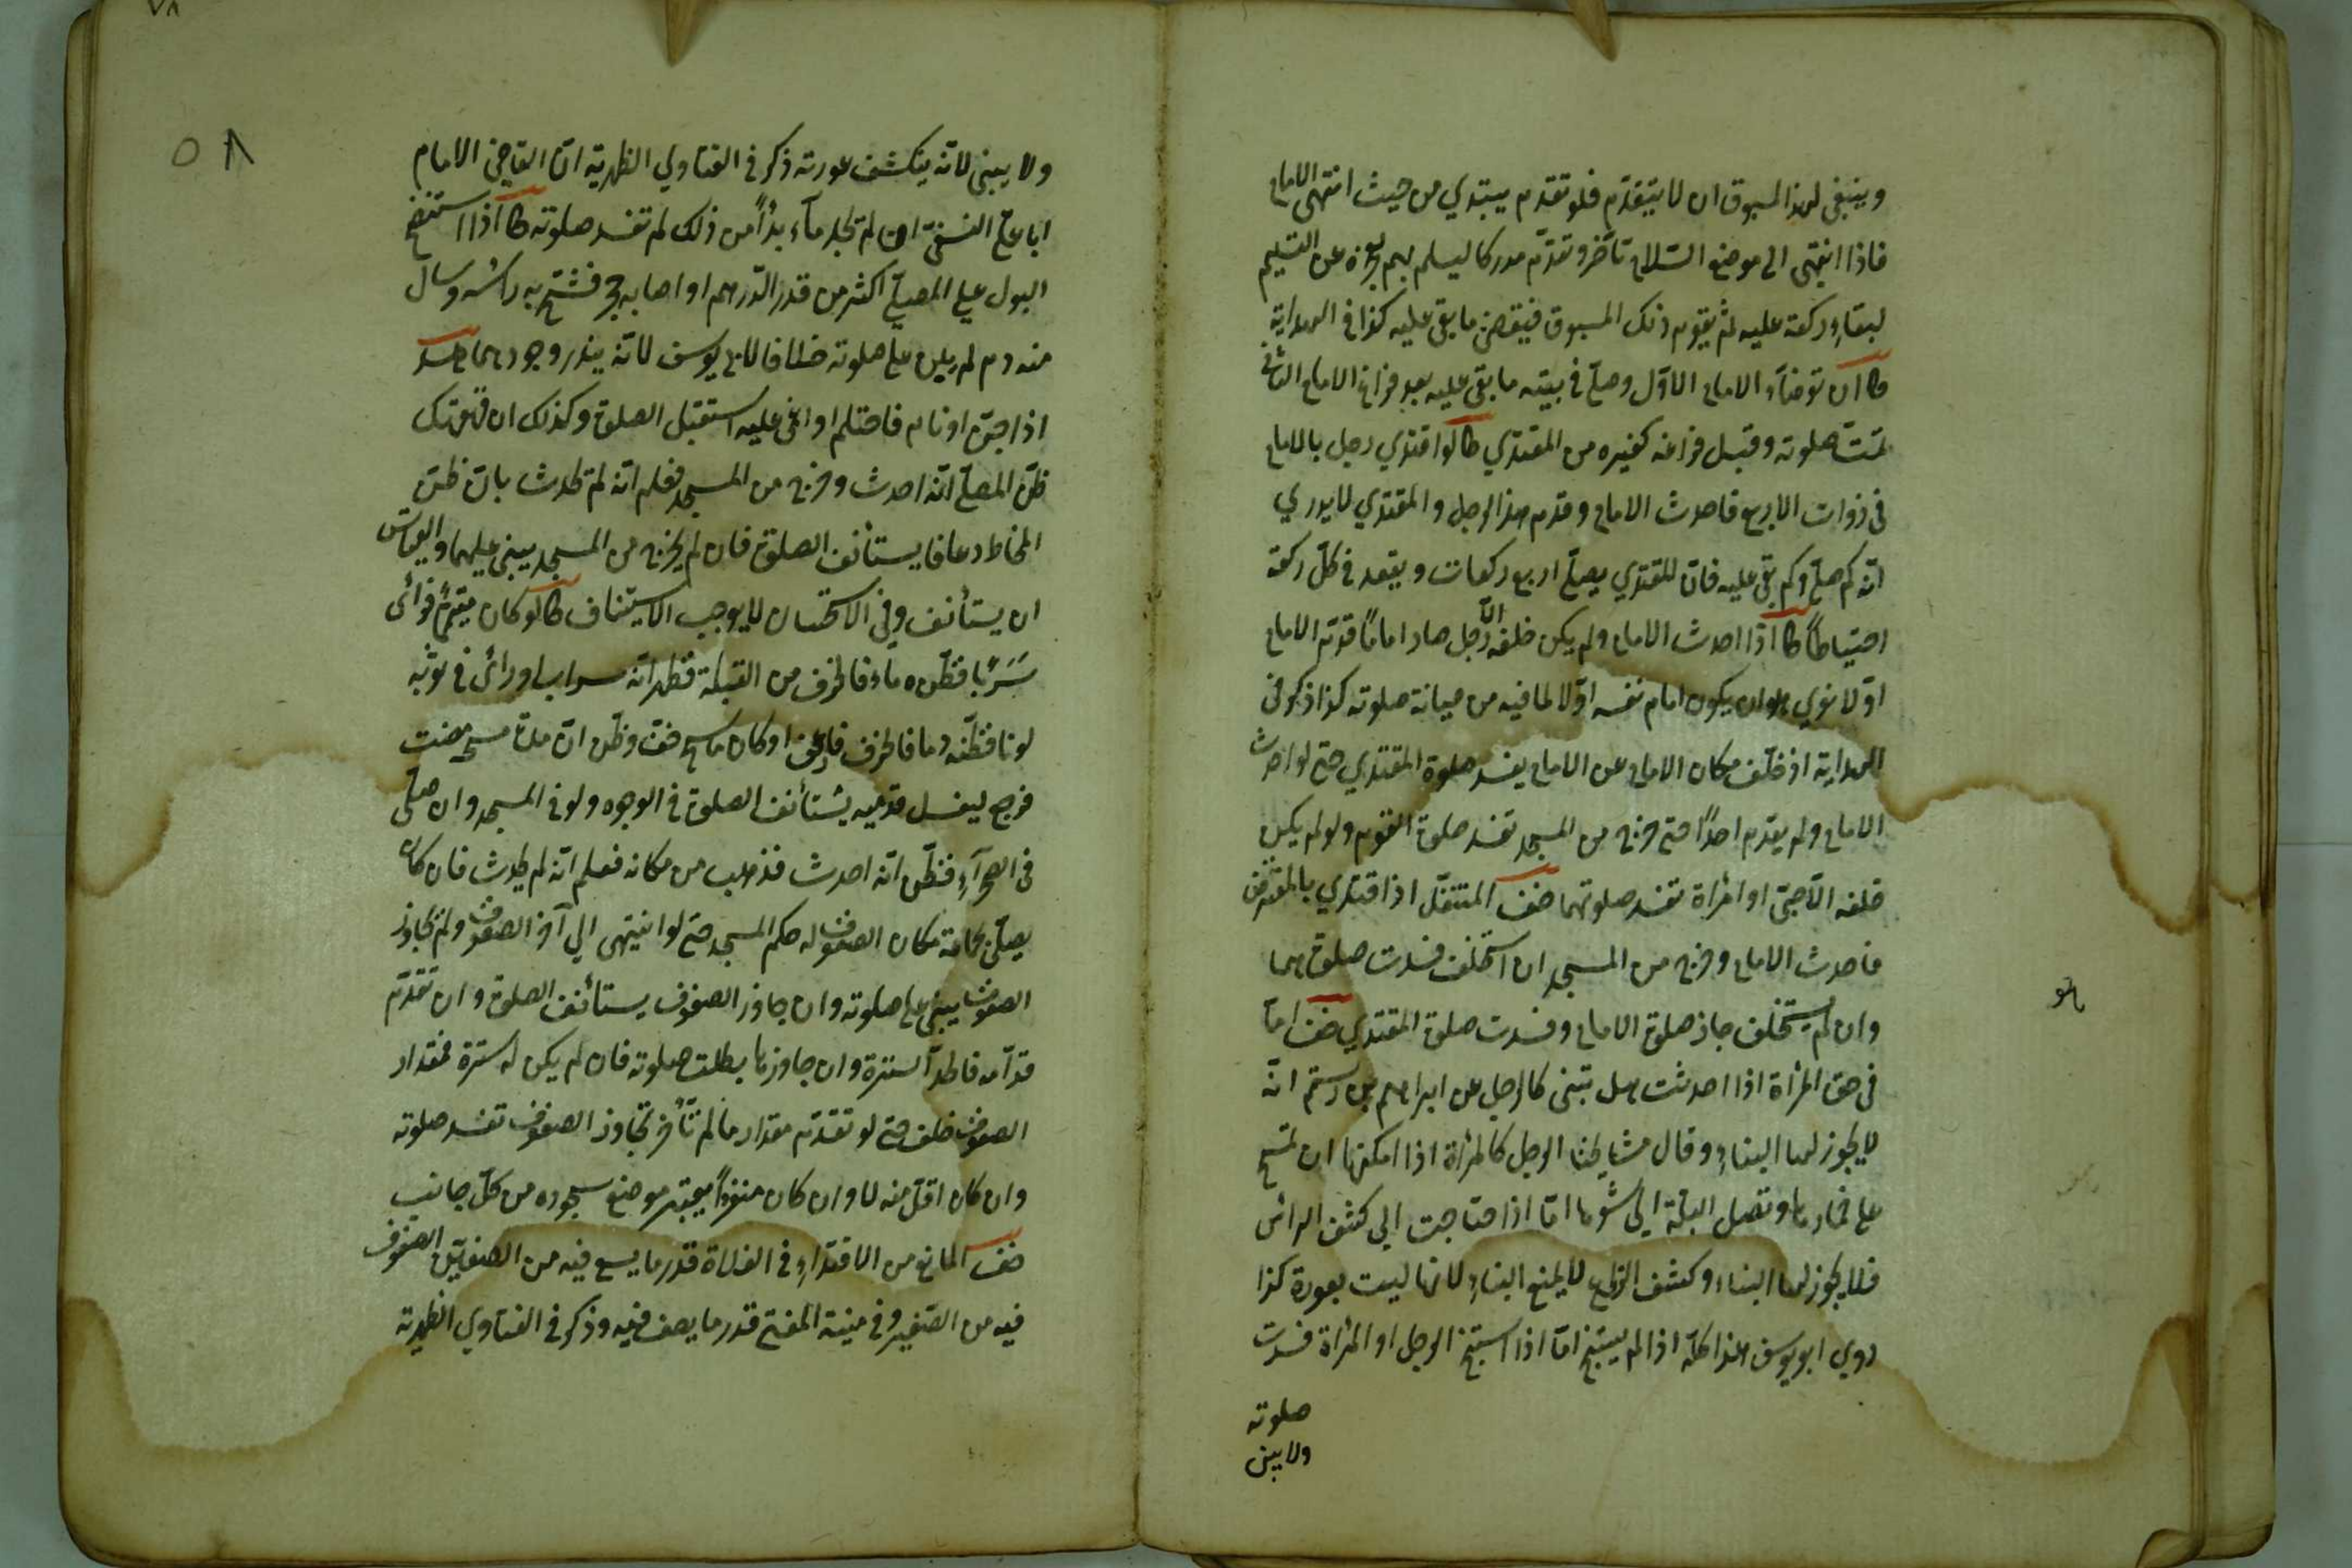 وينبغي لهذا المسبوق ان لا يتقدم فلو تقدم يبتدي من حيث انتهى الامام
فاذا انتهى الى موضع السلام تأخر وتقدم مدركا ليسلم بهم لعجزه عن التسليم
لبقاء ركعة عليه ثم يقوم ذلك المسبوق فيقضي ما بقي عليه كذا في الهداية
توضاء الامام الاول وصلى في بيته ما بقي عليه بعد فراغ الامام الثاني
تمت صلوته وقبل فراغه كغيره من المقتدي لو اقتدي رجل بالامام
في ذوات الاربع فاحدث الامام وقدم هذا الرجل والمقتدي لا يدري
انه كم صلى وكم بقي عليه فان للمقتدي يصلي اربع ركعات ويقعد في كل ركعة
احتياطا اذا احدث الامام ولم يكن خلفه الا رجل صار اماما قدمه الامام
اولا نوي هو ان يكون امام نفسه اولا لما فيه من صيانة صلوته كذا ذكر في
الهداية اذ خلف مكان الامام عن الامام يفسد صلوة المقتدي حتى لو احدث
الامام ولم يقدم احدا حتى خرج من المسجد تفسد صلوة القوم ولو لم يكن
خلفه الا صبي او امرأة تفسد صلوتهما المتنفل اذا اقتدي بالمفترض
فاحدث الامام وخرج من المسجد ان استخلف فسدت صلوتهما
وان لم يستخلف جاز صلوة الامام وفسدت صلوة المقتدي اما
في حق المرأة اذا احدثت هل تبني كالرجل عن ابراهيم بن رستم انه
لا يجوز لها البناء وقال مشايخنا الرجل كالمرأة اذا امكنها ان تمسح
على خمارها وتصل البلة الى شعرها اما اذا احتاجت الى كشف الرأس
فلا يجوز لها البناء وكشف الذراع لا يمنع البناء لانها ليست بعورة كذا
روي ابو يوسف هذا كله اذا لم يستنج اما اذا استنجى الرجل او المرأة فسدت
صلوته
ولا يبني
٥٨
ولا يبني لانه ينكشف عورته ذكر في الفتاوي الظهرية ان القاضي الامام
ابا علي النسفي ان لم يجد ماء بدأ من ذلك لم تفسد صلوته اذا استنضح
البول على المصلي اكثر من قدر الدرهم او اصابه حجر فشج به رأسه وسال
منه دم لم يبن على صلوته خلافا لابي يوسف لانه يندر وجودهما
اذا جن او نام فاحتلم او اغمي عليه استقبل الصلوة وكذلك ان قهقهة
ظن المصلي انه احدث وخرج من المسجد فعلم انه لم يحدث بان ظن
المخاط رعافا يستأنف الصلوة فان لم يخرج من المسجد يبني عليهما والقياس
ان يستأنف وفي الاستحسان لا يوجب الاستيناف لو كان متيمما فرأى
سرابا فظنه ماء فانحرف من القبلة فظهر انه سراب او رأى في ثوبه
لونا فظنه دما فانحرف او كان ماسح خف وظن ان مدة مسح مضت
فرجع ليغسل قدميه يستأنف الصلوة في الوجوه ولو في المسجد وان صلى
في الصحراء فظن انه احدث فذهب من مكانه فعلم انه لم يحدث فان كان
يصلي بجماعة مكان الصفوف له حكم المسجد حتى لو انتهى الى آخر الصفوف ولم يجاوز
الصفوف يبني على صلوته وان جاوز الصفوف يستأنف الصلوة وان تقدم
قدامه فالحد السترة وان جاوزها بطلت صلوته فان لم يكن له سترة فمقدار
الصفوف خلفه حتى لو تقدم مقدار ما لم تأخر تجاوز الصفوف تفسد صلوته
وان كان اقل منه لا وان كان منفردا يعتبر موضع سجوده من كل جانب
المانع من الاقتداء في الفلاة قدر ما يسع فيه من الصفين الصفوف
فيه من الصغير وفي منية المفتي قدر ما يصف فيه وذكر في الفتاوي الظهرية